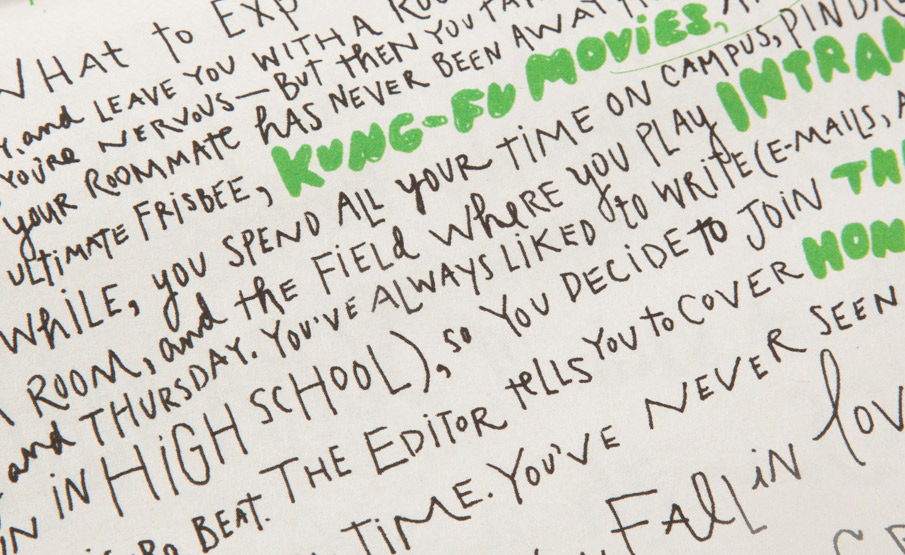 WHAT to EXP
and LEAVE YOU WITH A
YOU'RE NERVOUS—BUT then YOU
YOUR ROOMMATE hAS NEVER BEEN AWAY
ULTIMATE FRISBEE, KUNG-FU MOVIES,
WhiLE, YOU SPEND ALL YOUR TIME ON CAMPUS,
ROOM, and the FIELd WheRE YOU PLAY INTRAM
and THURSDAY. YOU'VE ALWAYS LIKED to WRITE (E-MAILS,
IN HiGH SCHOOL), so YOU DECIDE to JOIN
BEAT. THE EDITOR tells YOU to COVER HOM
TIME. YOU'VE NEVER SEEN
FALL in lov